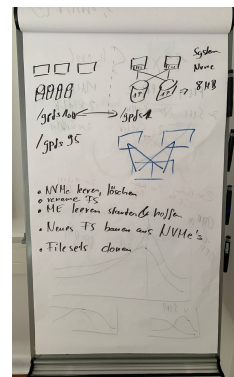 System
Name
8 MB
/gpfs
/gpfs
/gpfs 95
• NVMe leeren, löschen
• rename FS
• ME leeren starten & hoffen
• Neues FS bauen aus NVMe's
• Filesets clonen